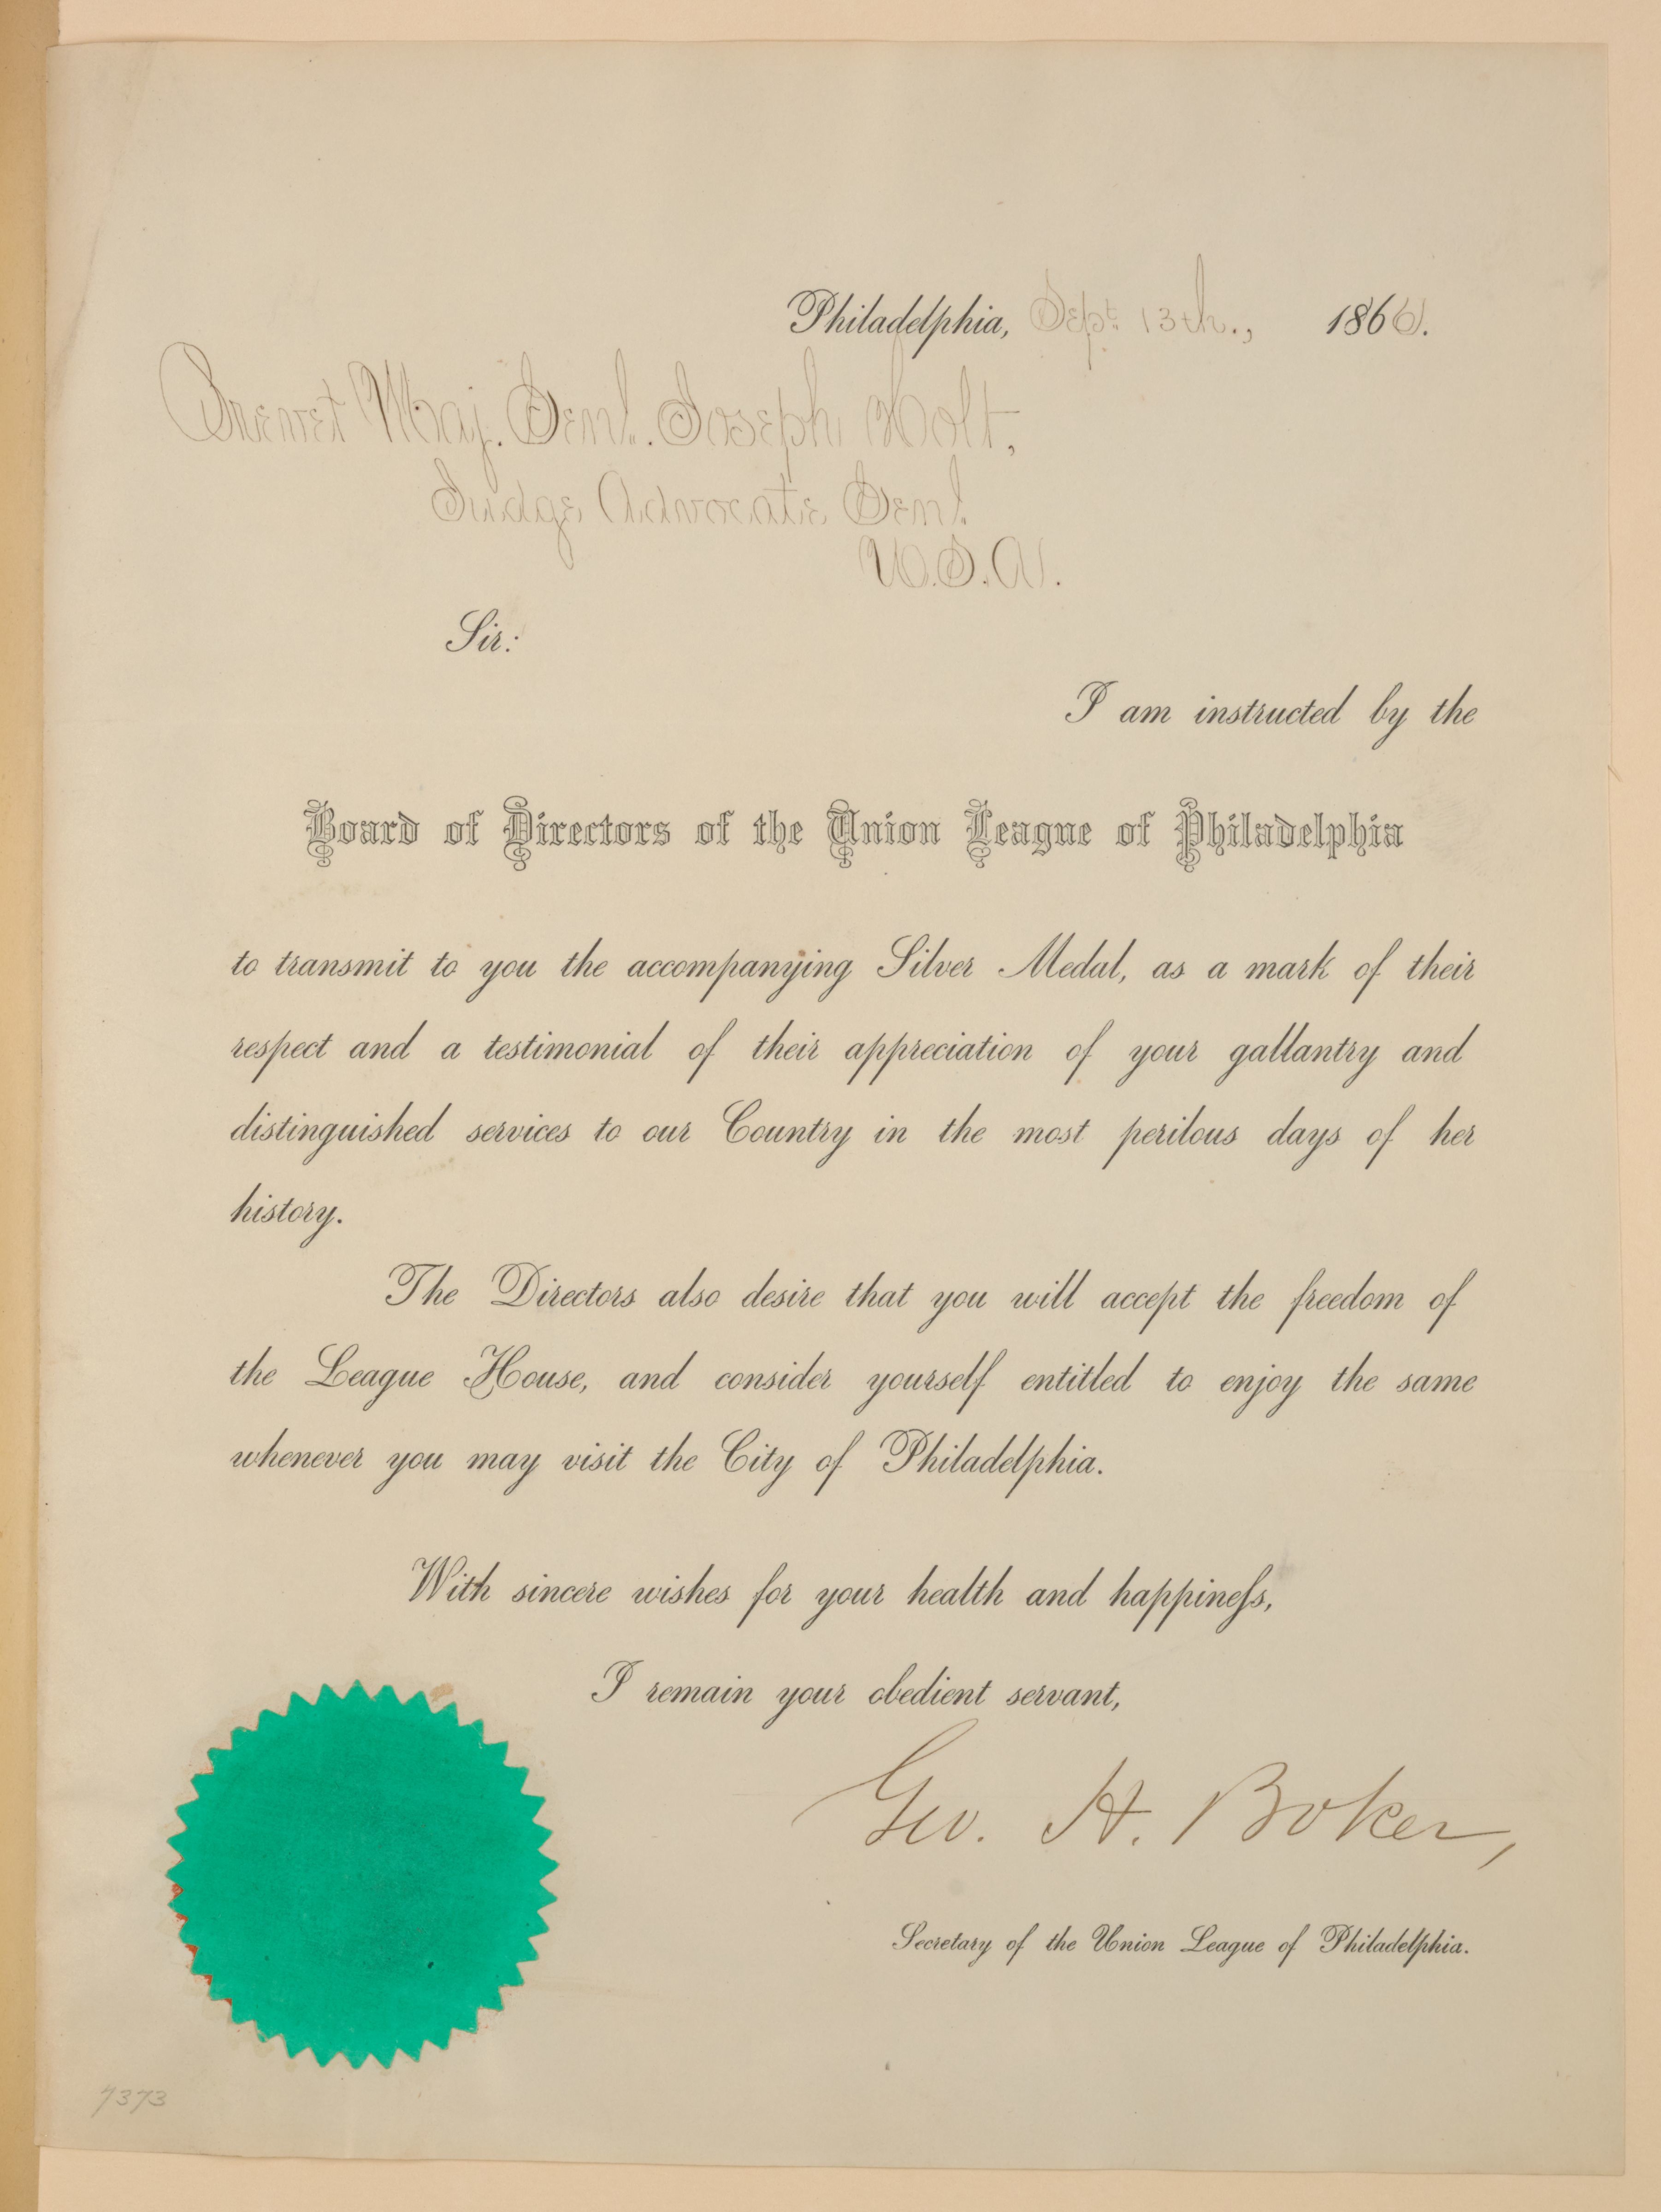 Philadelphia, Sept. 13th., 1866.
Brevet Maj. Genl. Joseph Holt,
Judge Advocate Genl.
U.S.A.
Sir:
I am instructed by the
Board of Directors of the Union League of Philadelphia
to transmit to you the accompanying Silver Medal, as a mark of their
respect and a testimonial of their appreciation of your gallantry and
distinguished services to our Country in the most perilous days of her
history.
The Directors also desire that you will accept the freedom of
the League House, and consider yourself entitled to enjoy the same
whenever you may visit the City of Philadelphia.
With sincere wishes for your health and happineſs,
I remain your obedient servant,
Geo. H. Boker,
Secretary of the Union League of Philadelphia.
7373